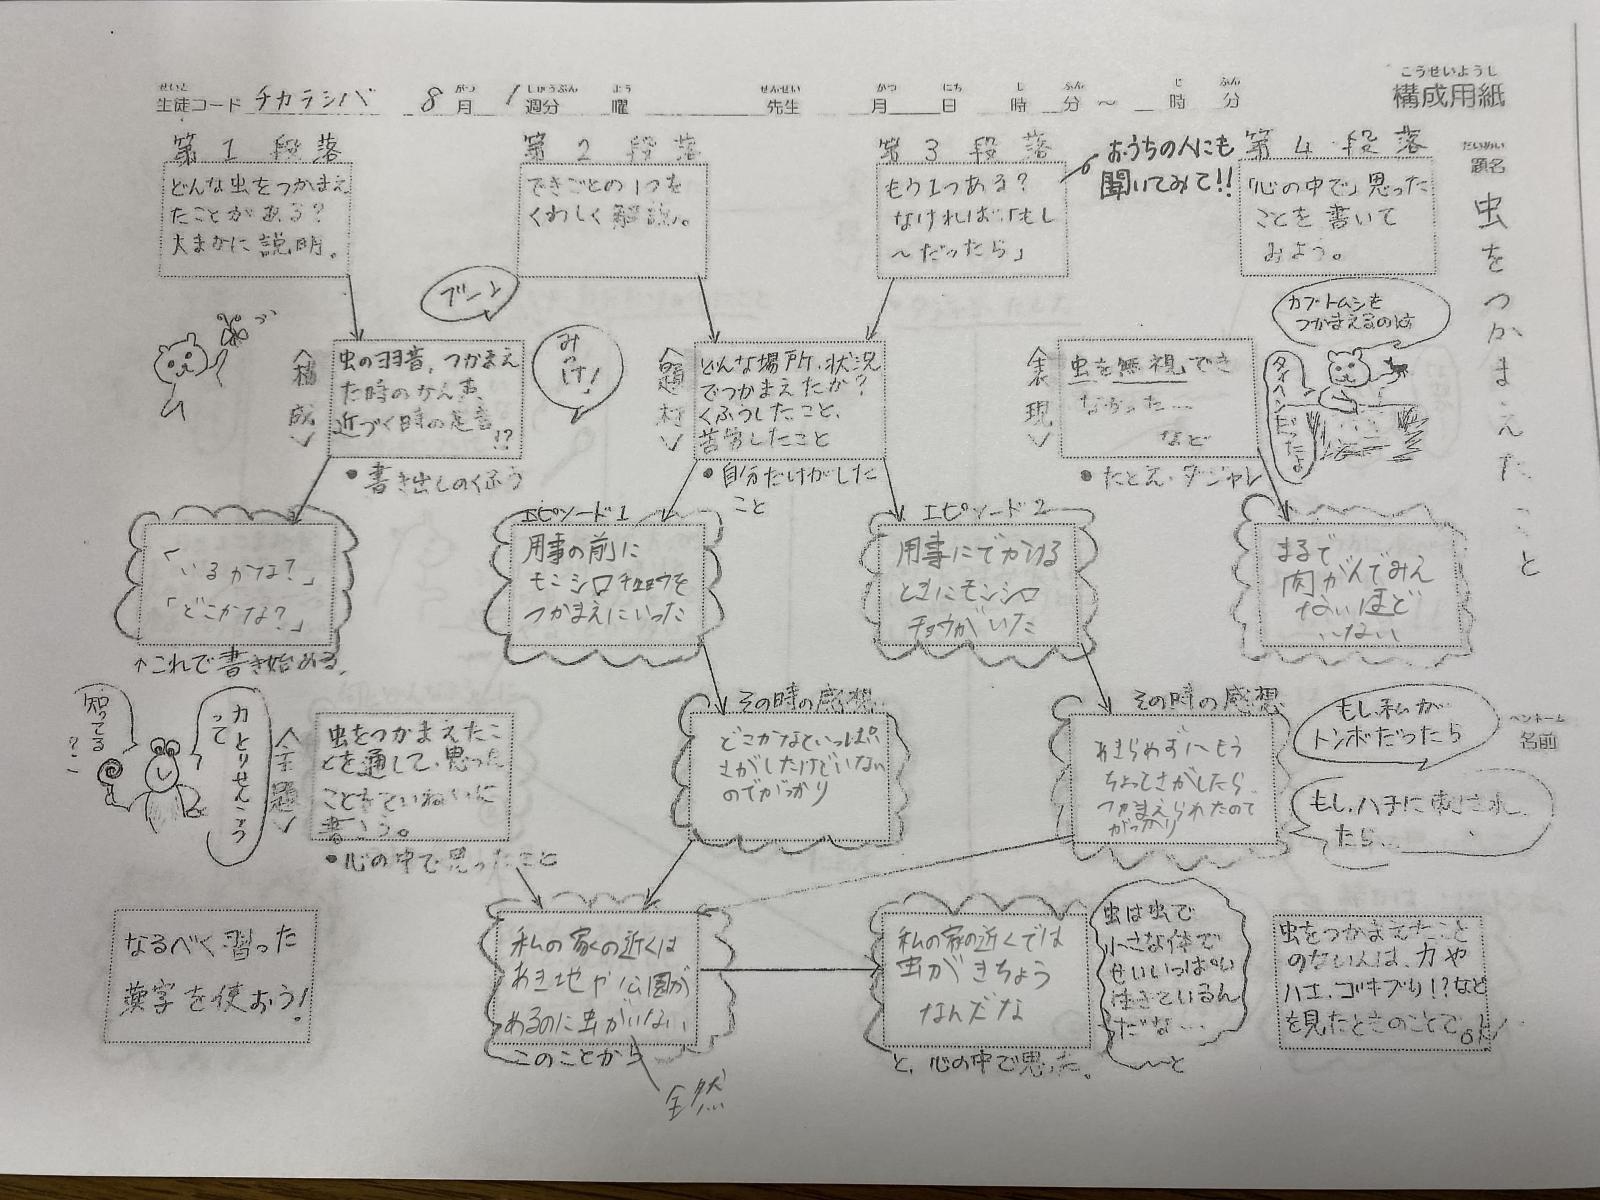 こうせいようし
構成用紙
せいと
生徒コード チカラシバ 8月 1週分 曜 先生 月 日 時 分 〜 時 分
がつ しゅうぶん よう せんせい がつ にち じ ふん じ ふん
だいめい
題名
虫をつかまえたこと
ペンネーム
名前
第1段落
どんな虫をつかまえ
たことがある?
大まかに説明。
第2段落
できごとの1つを
くわしく解説。
第3段落
もう1つある?
なければ「もし
〜だったら」
おうちの人にも
聞いてみて!!
第4段落
「心の中で」思った
ことを書いて
みよう。
ブーン
みっけ!
カブトムシを
つかまえるのは
タイヘンだったよ
〈構成〉
虫の羽音、つかまえ
た時のかん声、
近づく時の足音
!?
●書き出しのくふう
〈題材〉
どんな場所、状況
でつかまえたか?
くふうしたこと、
苦労したこと
●自分だけがした
こと
〈表現〉
虫を無視でき
なかった…
など
●たとえ・ダジャレ
「いるかな?」
「どこかな?」
↑これで書き始める。
エピソード1
用事の前に
モンシロチョウを
つかまえにいった
エピソード2
用事にでかける
ときにモンシロ
チョウがいた
まるで
肉がんでみえ
ないほど
いない
知ってる
?
カとりせんこう
って
〈主題〉
虫をつかまえたこ
とを通して、思った
ことをていねいに
書こう。
●心の中で思ったこと
その時の感想
どこかなといっぱい
さがしたけどいない
のでがっかり
その時の感想
あきらめずにもう
ちょっとさがしたら
つかまえられたので
もし、私が
トンボだったら
もし、ハチに刺され
たら…
なるべく習った
漢字を使おう!
私の家の近くは
あき地や公園が
あるのに虫がいない
このことから
全然
私の家の近くでは
虫がきちょう
なんだな
と、心の中で思った。
虫は虫で
小さな体で
せいいっぱい
生きているん
だな…
〜と
虫をつかまえたこと
のない人は、カや
ハエ、ゴキブリ!?など
を見たときのことでOK!